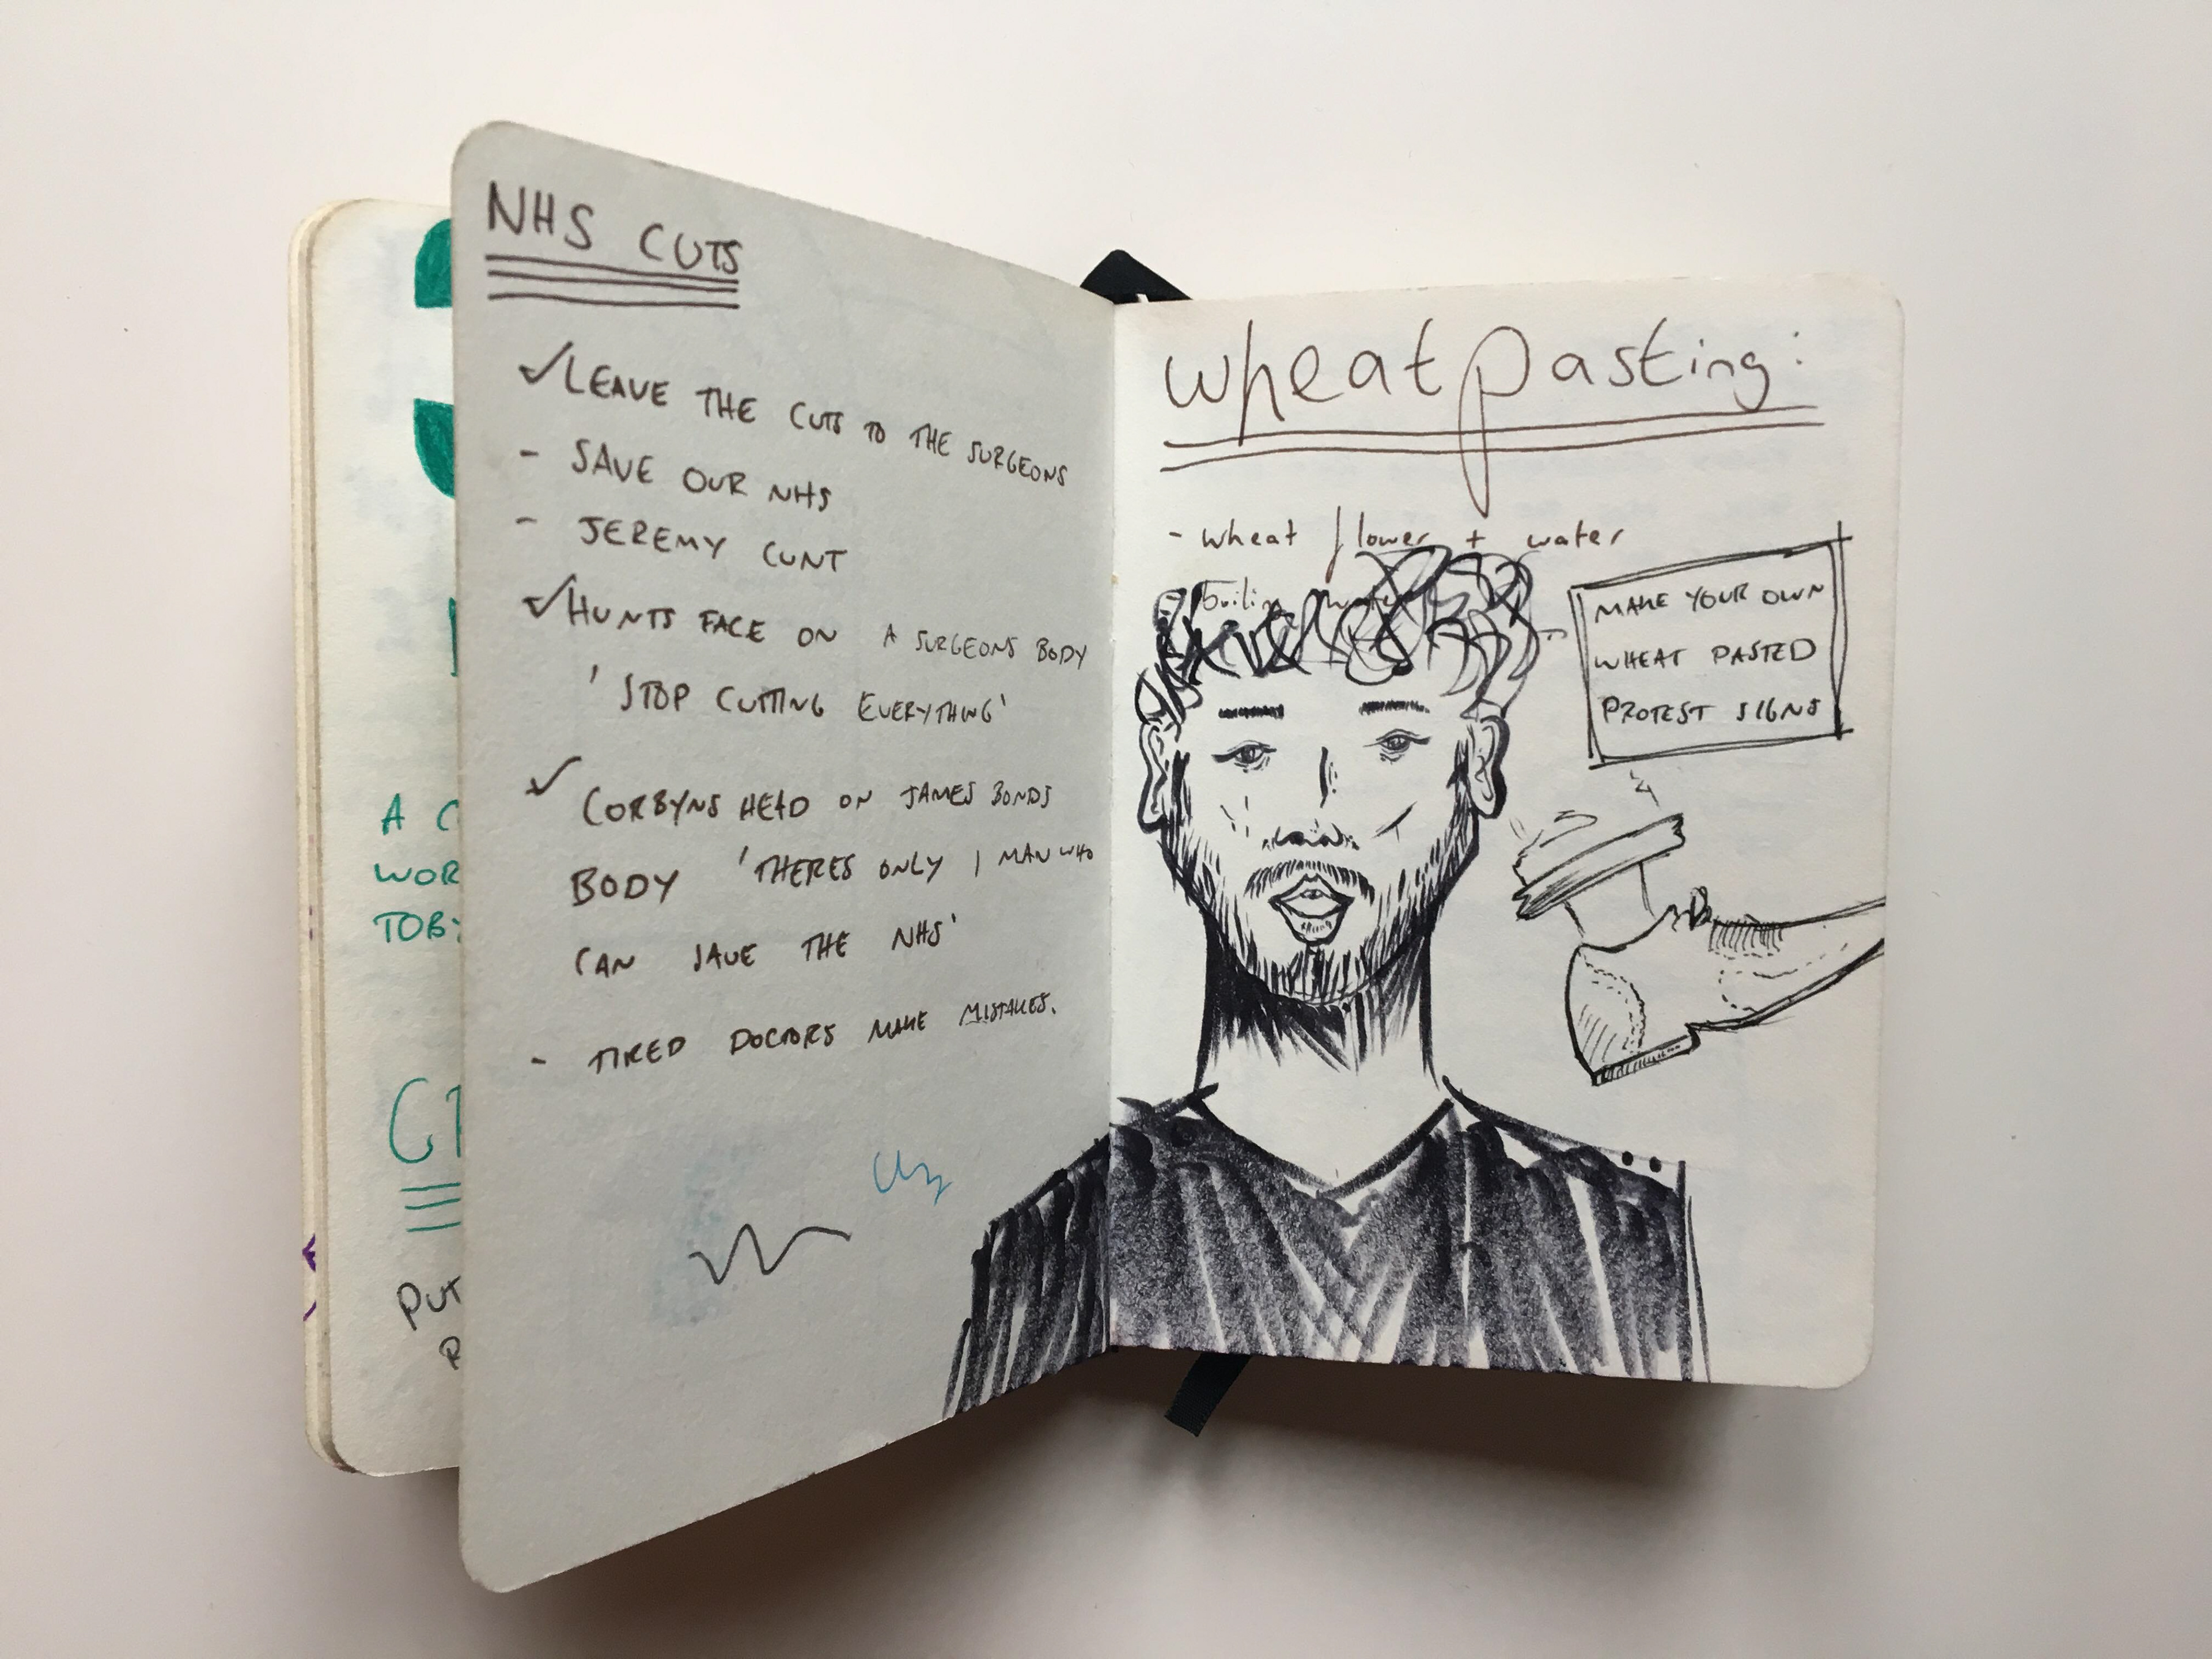 NHS CUTS
✓ LEAVE THE CUTS TO THE SURGEONS
- SAVE OUR NHS
- JEREMY CUNT
✓ HUNTS FACE ON A SURGEONS BODY
'STOP CUTTING EVERYTHING'
✓ CORBYNS HEAD ON JAMES BONDS
BODY 'THERES ONLY 1 MAN WHO
CAN SAVE THE NHS'
- TIRED DOCTORS MAKE MISTAKES.
wheatpasting:
- wheat flower + water
MAKE YOUR OWN
WHEAT PASTED
PROTEST SIGNS
A C
WOR
TOBY
PUT